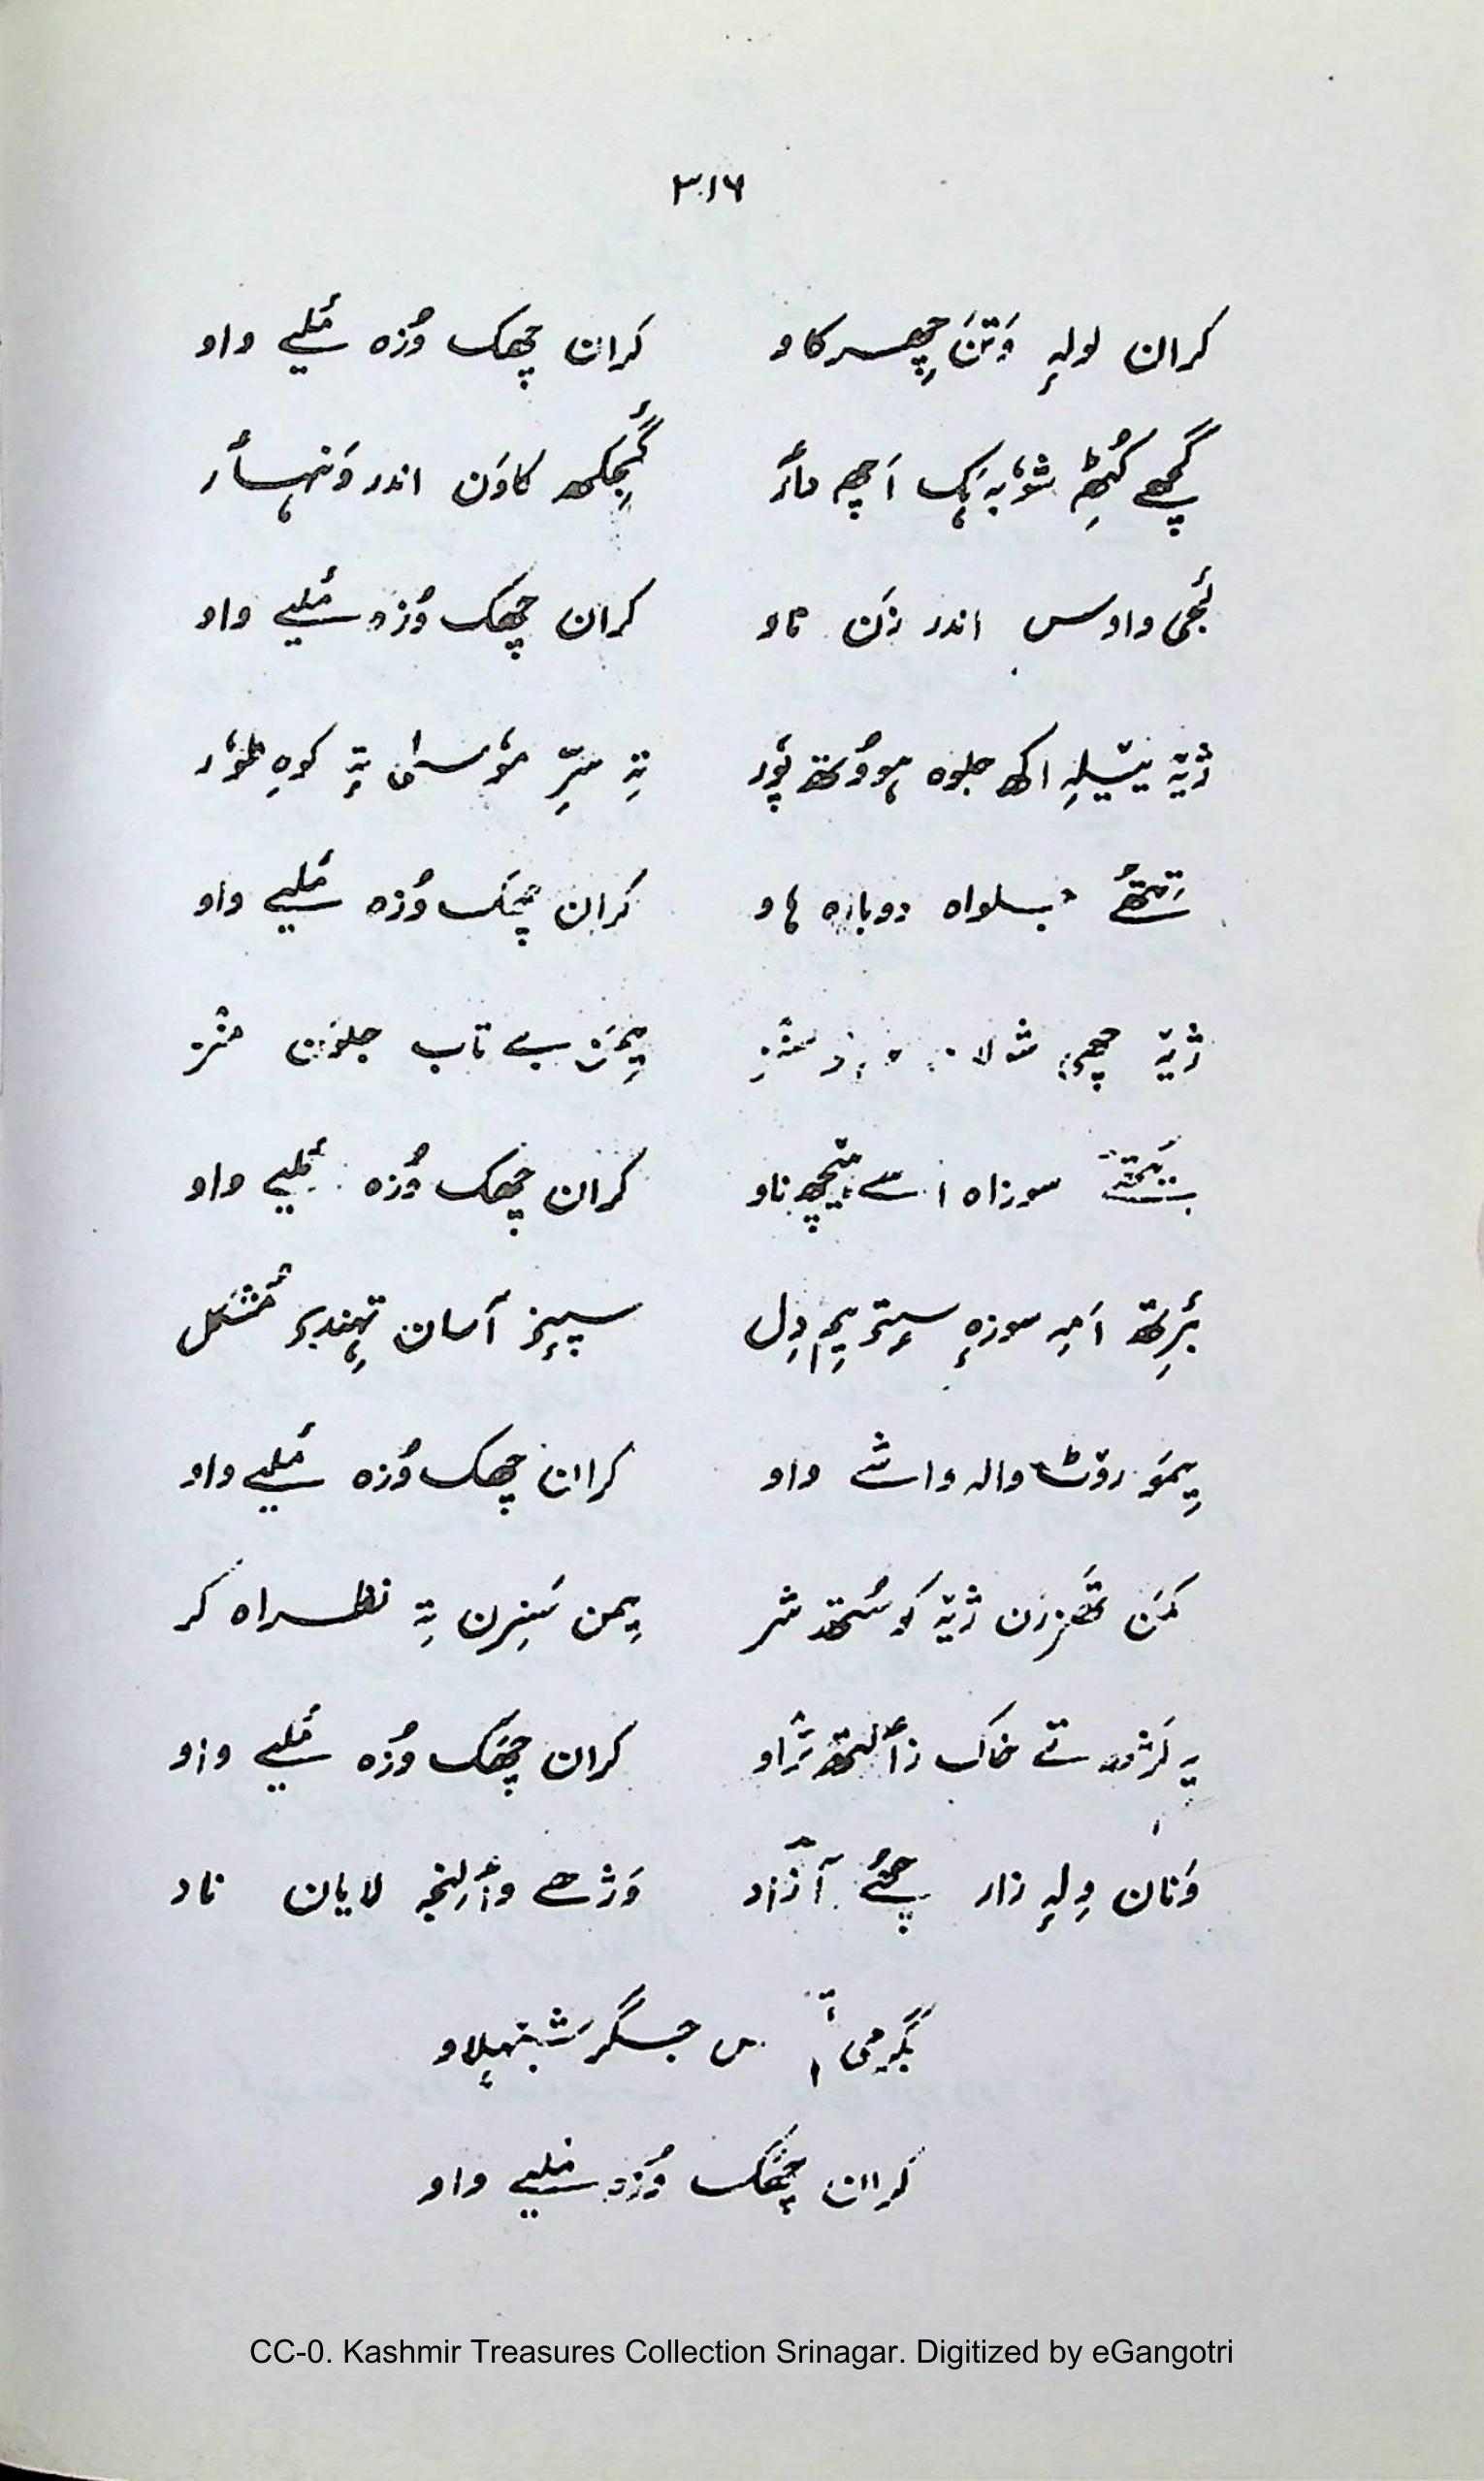 ۳۱۶
کران لولہٕ وَتَن چھِرکاو کران چھک وُزہ مَلیے واو
گژھے کُٹھِ شوٗبہٕ ہَک اَچھ دٲر گٔیکھ کاوَن اندر وَنہٲر
لٔجی داوس اندر زَن ناو کران چھک وُزہ مَلیے واو
ژیہِ ییٚلہِ اکھ جلوہ ہووُتھ پوٗر تہِ سِرِّ موٗسیٰ تہٕ کوہِ طوٗر
تِتھُے جلواہ دوبارہ ہاو کران چھک وُزہ مَلیے واو
ژیہِ چھی یِمَن بے تاب جلوَن منٛز
سوزاہ کران چھک وُزہ مَلیے واو
بٔرِتھ اَمہِ سوزہٕ سٟتۍ یِم دِل سپٕنۍ آسان تہٕندۍ مُشکل
یِمَو روٚٹ والہ واشے واو کران چھک وُزہ مَلیے واو
کمَن تھَزرن ژیہِ کوٚرتھ شر یِمن سَنِرن تہِ نظراہ کر
یہ لَژھہ تے خاک زٲلِتھ ترٛاو کران چھک وُزہ مَلیے واو
وَنان وِلہٕ زار چھُے آزاد وَژھے وٲلِنجہ لایان ناد
جگر شہلاو
کران چھک وُزہ مَلیے واو
CC-0. Kashmir Treasures Collection Srinagar. Digitized by eGangotri